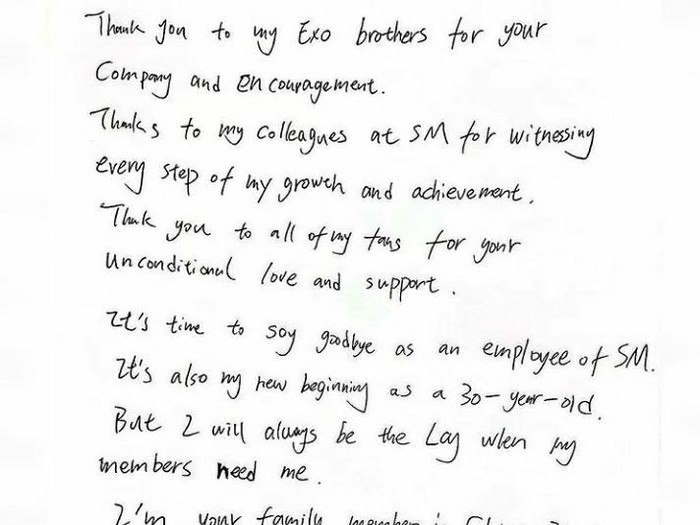 Thank you to my Exo brothers for your
Company and encouragement.
Thanks to my colleagues at SM for witnessing
every step of my growth and achievement.
Thank you to all of my fans for your
unconditional love and support.
It's time to say goodbye as an employee of SM.
It's also my new beginning as a 30-year-old.
But I will always be the Lay when my
members need me.
I'm your family member in